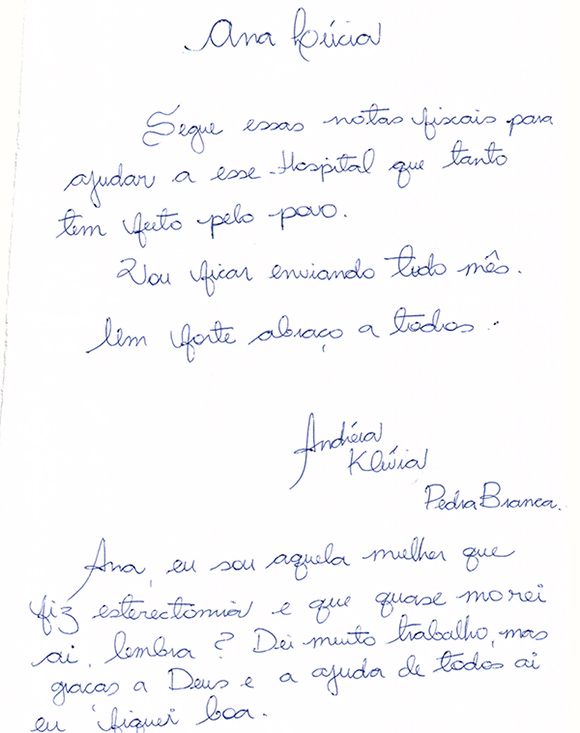 Ana Lúcia
Segue essas notas fiscais para
ajudar a esse Hospital que tanto
tem feito pelo povo.
Vou ficar enviando todo mês.
Um forte abraço a todos.
Andréia
Klívia
Pedra Branca.
Ana, eu sou aquela mulher que
fiz esterectomia e que quase morei
ai, lembra? Dei muito trabalho, mas
graças a Deus e a ajuda de todos ai
eu fiquei boa.